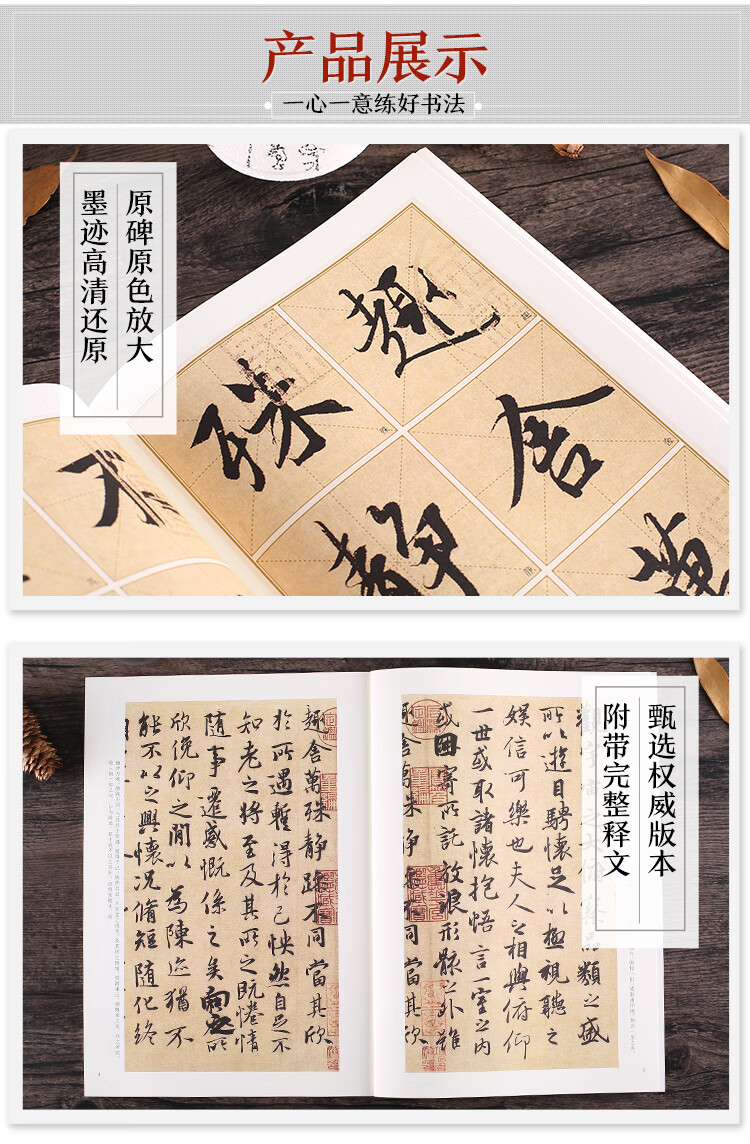 产品展示
一心一意练好书法
原碑原色放大
墨迹高清还原
趣
舍
殊
静
萬
不
甄选权威版本
附带完整释文
品類之盛
所以遊目騁懷足以極視聽之
娱信可樂也夫人之相與俯仰
一世或取諸懷抱悟言一室之内
或因寄所託放浪形骸之外雖
趣舍萬殊静躁不同當其欣
趣舍萬殊静躁不同當其欣
於所遇暫得於己怏然自足不
知老之將至及其所之既惓情
随事遷感慨係之矣向之所
欣俛仰之閒以爲陳迹猶不
能不以之興懷況脩短随化終